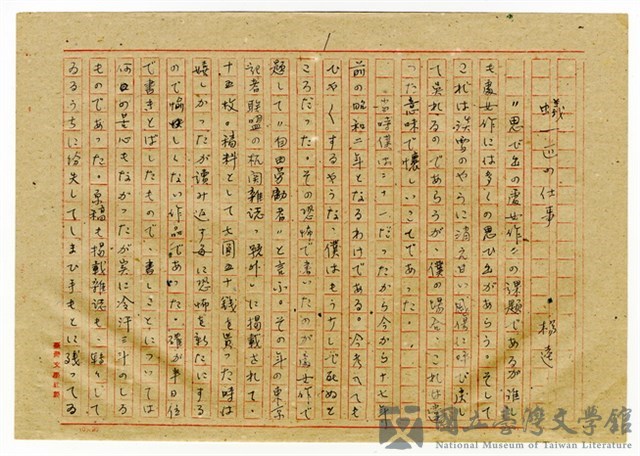 1
蟻一匹の仕事
楊逵
"思ひ出の處女作"の課題であるが誰
も處女作には多くの思ひ出があらう。そして
これは淡雪のやうに消え
て呉れるのであらうが、僕の場合、これは
った意味で懐しいことであった。
當時僕は二十一だったから今から十七年
前の昭和二年となるわけである。今考へても
ひやくするやうな、僕はもう少しで死ぬと
ころだった。その恐怖で書いたのが處女作で
題して"自由勞働者"と言ふ。その年の東京
記者聯盟の机関雜誌"號外"に掲載されて、
十五枚の稿料として七圓五十錢を貰った時は
嬉しかったが讀み返す毎に恐怖を新たにする
ので愉快しくない作品であった。確か半日位
で書きとばしたもので、書くことについては
何の苦心もなかったが実に冷汗三斗のしろ
ものであった。原稿も掲載雜誌も、轉々して
ゐるうちに紛失してしまひ手もとに残ってゐ
國立臺灣文學館
National Museum of Taiwan Literature